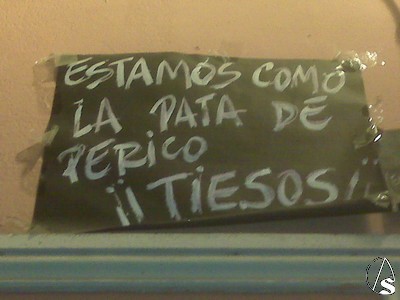 ESTAMOS COMO
LA PATA DE
PERICO
¡¡TIESOS!!